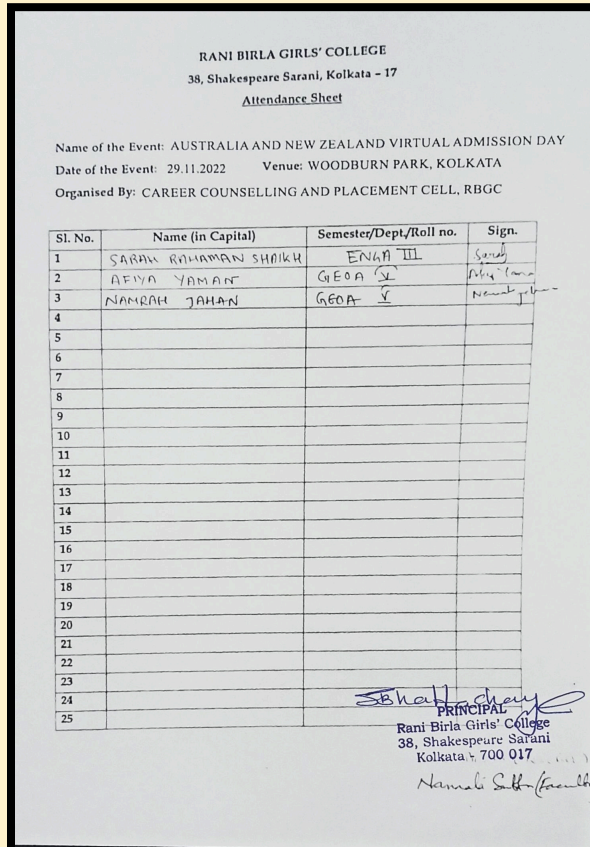 RANI BIRLA GIRLS' COLLEGE
38, Shakespeare Sarani, Kolkata – 17
Attendance Sheet
Name of the Event: AUSTRALIA AND NEW ZEALAND VIRTUAL ADMISSION DAY
Date of the Event: 29.11.2022 Venue: WOODBURN PARK, KOLKATA
Organised By: CAREER COUNSELLING AND PLACEMENT CELL, RBGC
Sl. No. Name (in Capital) Semester/Dept./Roll no. Sign.
1 SARAH RAHAMAN SHAIKH ENGA III Sarah
2 AFIYA YAMAN GEOA V
3 NAMRAH JAHAN GEOA V
4
5
6
7
8
9
10
11
12
13
14
15
16
17
18
19
20
21
22
23
24
25
PRINCIPAL
Rani Birla Girls' College
38, Shakespeare Sarani
Kolkata - 700 017